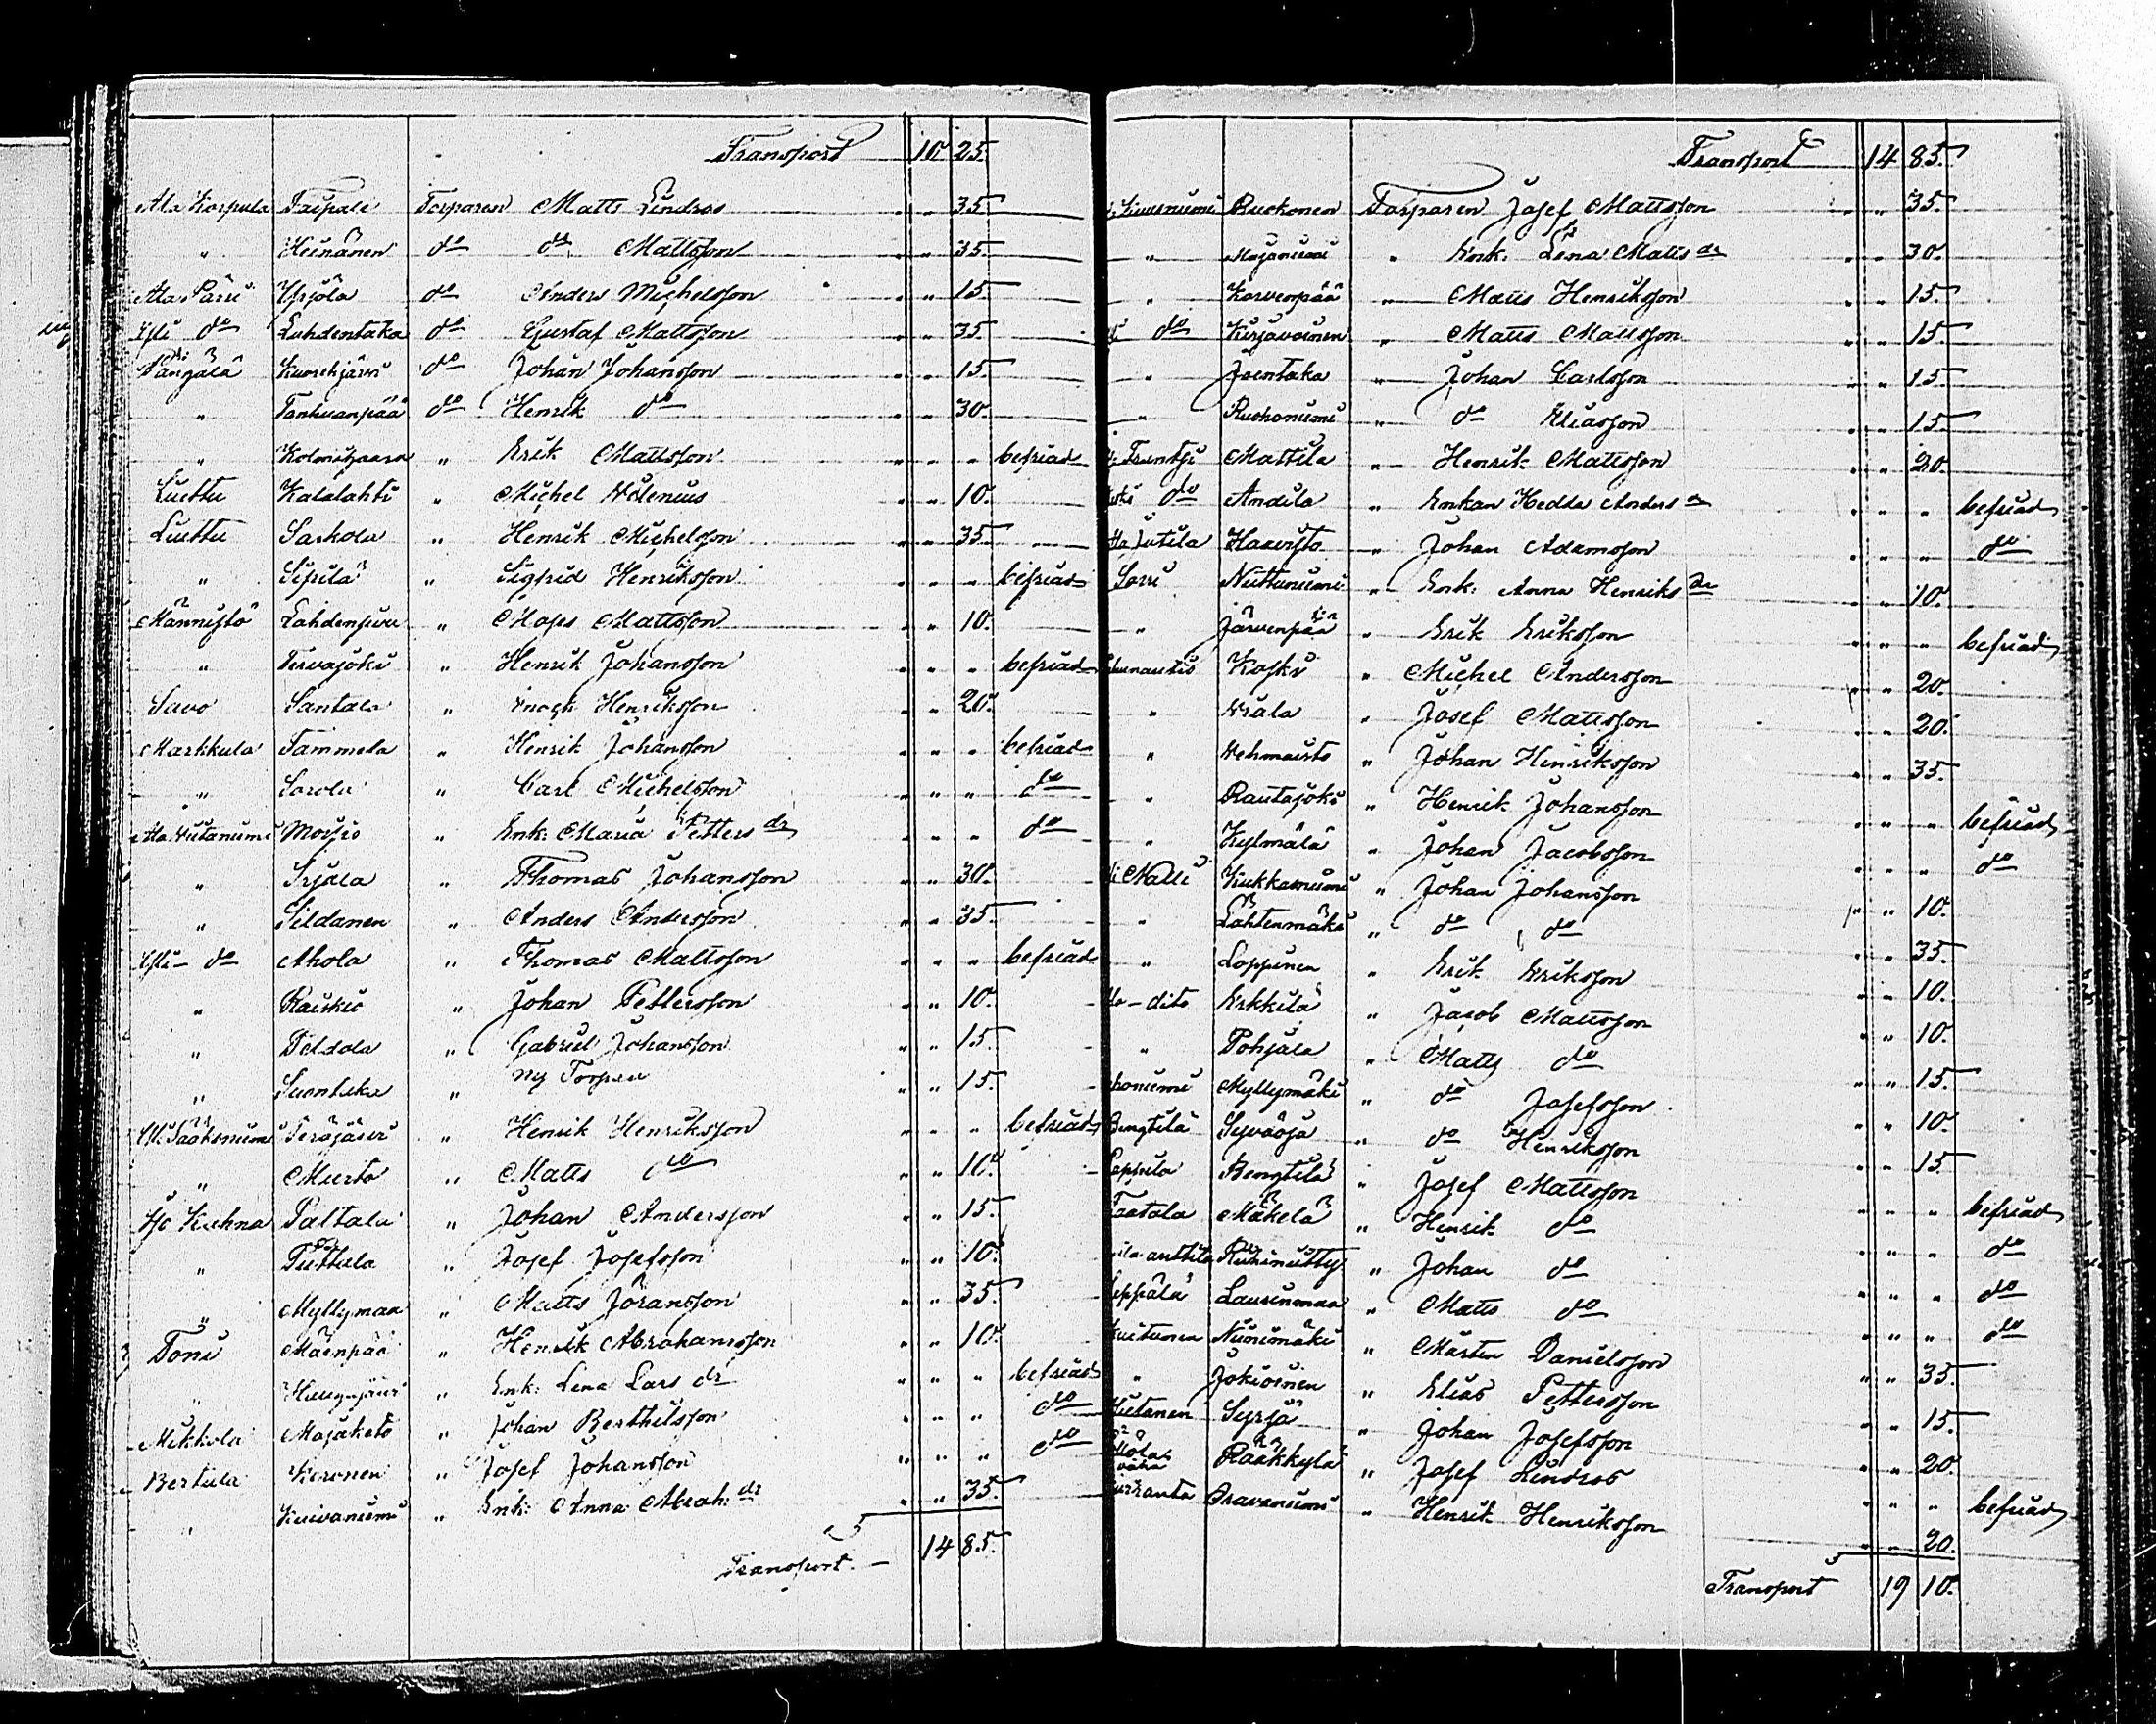 Transport 10 25.
Ala Korpula Taipale Torparen Matts Lindros " " 35.
" Heinänen do do Mattsson " " 35.
Ala Parri Yrjölä do Anders Michelsson " " 15.
Yli do Luhdentaka do Gustaf Mattsson " " 35.
Kuorehjärvi do Johan Johansson " " 15.
" Tanhuanpää do Henrik do " " 30.
" Kolmihaara " Erik Mattsson " " " befriad
Liuttu Kalalahti " Michel Wilenius " " 10.
Liuttu Sarkola " Henrik Michelsson " " 35.
" Sipilä " Sigfrid Henriksson " " " befriad
Männistö Lahdensivu " Moses Mattsson " " 10.
" Tervajoki " Henrik Johansson " " " befriad
Savo Santala " Enogh Henriksson " " 20.
Markkula Tammela " Henrik Johansson " " " befriad
" Sorola " Carl Michelsson " " " do
Ala Niitanumi Moisio " Enk: Maria Petters dr " " " do
" Irjala " Thomas Johansson " " 30.
" Sildanen " Anders Andersson " " 35.
Yli- do Ahola " Thomas Mattsson " " " befriad
" Raiskio " Johan Pettersson " " 10.
" Peldola " Gabriel Johansson " " 15.
" Suontaka " Ny Torpare " " 15.
Yli Pääkönumi Teräjärvi " Henrik Henriksson " " " befriad
" Murto " Matts do " " 10.
Iso Kuhna Paltala " Johan Andersson " " 15.
" Puttula " Josef Josefsson " " 10.
" Myllymaa " Matts Jöransson " " 35.
Toni Mäenpää " Henrik Abrahamsson " " 10.
" Haugajärvi " Enk: Lena Lars dr " " " befriad
Mikkola Majaketo " Johan Berthilsson " " " do
Bertula Keronen " Josef Johansson " " " do
" Kuivanumi " Enk: Anna Abrah: dr " " 35.
Transport. 14 85.
Transport 14 85.
Ruokonen Torparen Josef Mattsson " " 35.
" Majanumi " Enk. Lena Matts dr " " 30.
" Korvenpää " Matts Henriksson " " 15.
do Kirjavainen " Matts Mattsson " " 15.
" Joentaka " Johan Carlsson " " 15.
" Ruohonumi " do Eliasson " " 15.
Mattila " Henrik Mattsson " " 20.
do Andila " Enkan Hedda Anders dr " " " befriad
Ala Jutila Haavisto " Johan Adamsson " " " do
Sorri Niittunumi " Enk: Anna Henriks dr " " 10.
" Järvenpää " Erik Eriksson " " " befriad
Koski " Michel Andersson " " 20.
" Wiala " Josef Mattsson " " 20.
" Wehmaisto " Johan Henriksson " " 35.
" Rautajoki " Henrik Johansson " " " befriad
" Kylmälä " Johan Jacobsson " " " do
Yli Nalli Kukkanumi " Johan Johansson " " 10.
" Lahtenmäki " do do " " 35.
" Loppinen " Erik Eriksson " " 10.
Ala-dito Erkkilä " Jacob Mattsson " " 10.
" Pohjala " Matts do " " 15.
Myllymäki " do Josefsson " " 10.
Bengtilä Syväoja " do Henriksson " " 15.
Seppila Bengtilä " Josef Mattsson " " " befriad
Taatala Mäkelä " Henrik do " " " do
Riihiniitty " Johan do " " " do
Seppälä Laurinmaa " Matts do " " " do
Kuitunen Niinimäki " Mårten Danielsson " " 35.
" Jokioinen " Elias Pettersson " " 15.
Hietanen Syrjä " Johan Josefsson " " 20.
Rääkkylä " Josef Lindros " " " befriad
Oravanumi " Henrik Henriksson " " 20.
Transport 19 10.